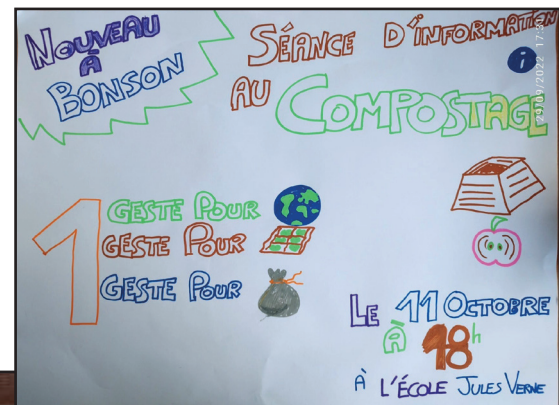 NOUVEAU
À
BONSON
SÉANCE D'INFORMATION
AU COMPOSTAGE
i
29/09/2022 17:30
1
GESTE POUR
GESTE POUR
GESTE POUR
LE 11 OCTOBRE
À 18h
À L'ÉCOLE JULES VERNE